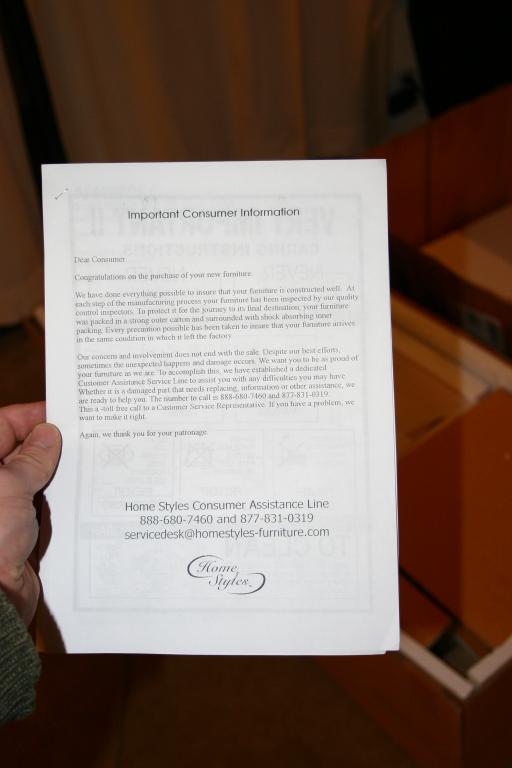 Important Consumer Information
Dear Consumer
Congratulations on the purchase of your new furniture.
We have done everything possible to insure that your furniture is constructed well. At
each step of the manufacturing process your furniture has been inspected by our quality
control inspectors. To protect it for the journey to its final destination, your furniture
was packed in a strong outer carton and surrounded with shock absorbing inner
packing. Every precaution possible has been taken to insure that your furniture arrives
in the same condition in which it left the factory
Our concern and involvement does not end with the sale. Despite our best efforts,
sometimes the unexpected happens and damage occurs. We want you to be as proud of
your furniture as we are. To accomplish this, we have established a dedicated
Customer Assistance Service Line to assist you with any difficulties you may have
Whether it is a damaged part that needs replacing, information or other assistance, we
are ready to help you. The number to call is 888-680-7460 and 877-831-0319.
This a -toll free call to a Customer Service Representative. If you have a problem, we
want to make it right.
Again, we thank you for your patronage.
Home Styles Consumer Assistance Line
888-680-7460 and 877-831-0319
servicedesk@homestyles-furniture.com
Home
Styles
VERY IMPORTANT !!
CARING INSTRUCTIONS
NEVER
TO CLEAN